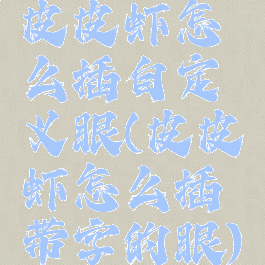 皮皮虾怎
么插自定
义眼(皮皮
虾怎么插
带字的眼)